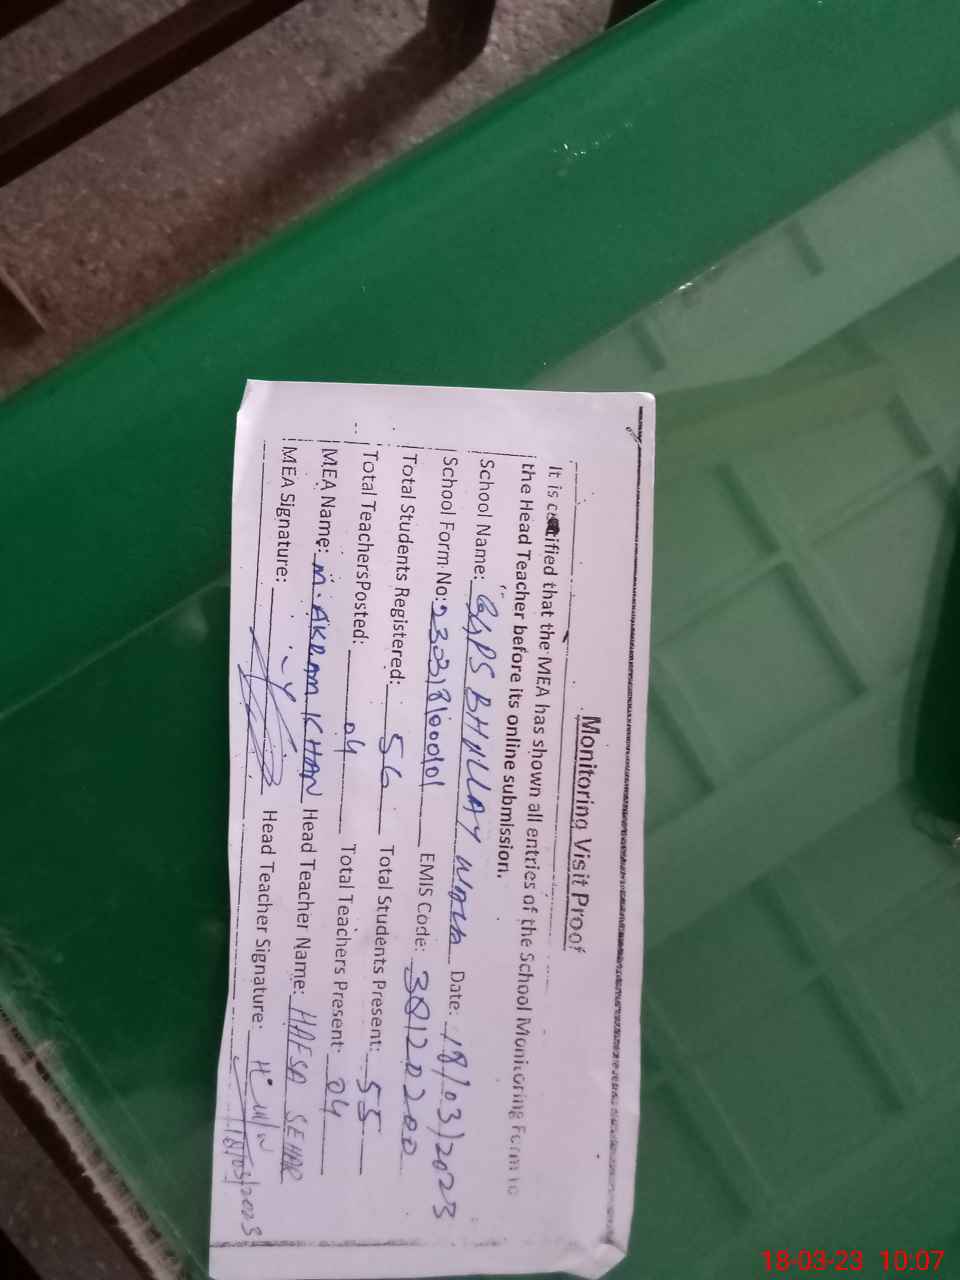 Monitoring Visit Proof
It is certified that the MEA has shown all entries of the School Monitoring Form to
the Head Teacher before its online submission.
School Name: GGPS BHILLAY WALA Date: 18/03/2023
School Form No: EMIS Code: 38120200
Total Students Registered: 56 Total Students Present: 55
Total TeachersPosted: 04 Total Teachers Present: 04
MEA Name: M. AKRAM KHAN Head Teacher Name: HAFSA SEHAR
MEA Signature: Head Teacher Signature:
18/03/2023
18-03-23 10:07